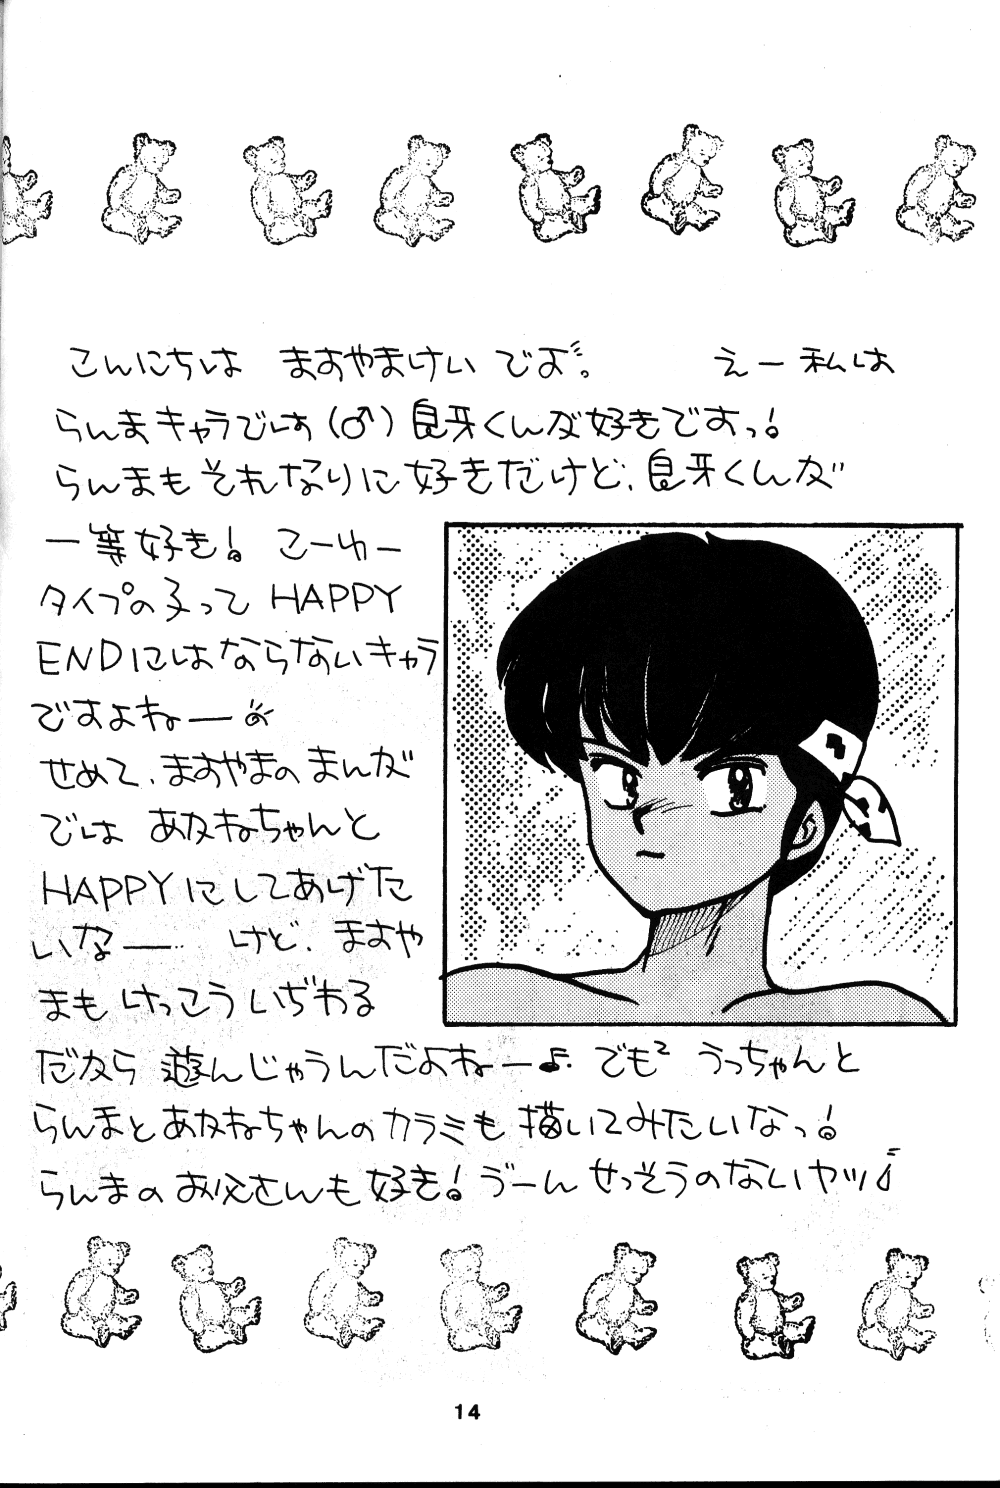 こんにちは ますやまけい でよ。 えー 私は
らんまキャラでは(♂)良牙くんが好きですっ!
らんまもそれなりに好きだけど、良牙くんが
一等好き! こーゆー
タイプの子って HAPPY
ENDにはならないキャラ
ですよねー
せめて、ますやまのまんが
では あかねちゃんと
HAPPYにしてあげた
いなー けど、ますや
まも けっこういぢわる
だから 遊んじゃうんだよねー♪ でも² うっちゃんと
らんまとあかねちゃんのカラミも 描いてみたいなっ!
らんまの お父さんも好き! ゔーん せっそうのないヤツ♪
14